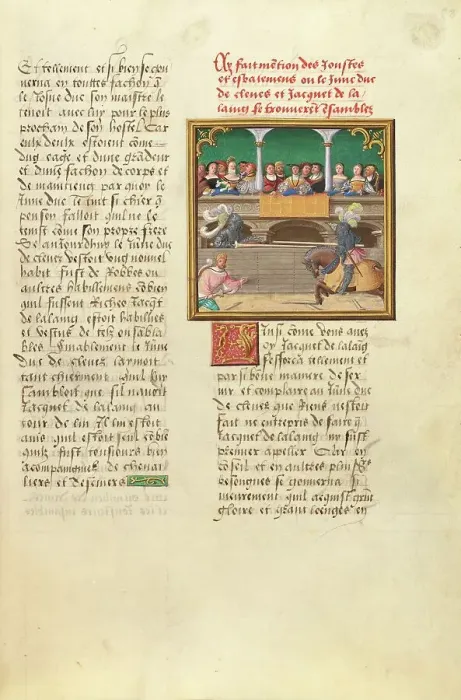 Et tellement et si bien se gou
verna en touttes fachon q̄
le josne duc son maistre le
tenoit avec luy pour le plus
prochain de son hostel Car
eulx deux estoient come
dug eage et dune grãdeur
et dune fachon de corps et
de maintieng par quoy le
June duc le tint si chier q̄
penser falloit quil ne le
tenist come son propre frere
Se aujourdhuy le June duc
de cleves vestoit ung nouvel
habit fust de Robbes ou
aultres habillemens cõbien
quil fussent Riches Jacqt
de lalaing estoit habillies
et vestus de telz ou sãbla
bles Finablement le June
duc de cleves lavmoit
tant chierement quil luy
sambloit que sil navoit
Jacquet de lalaing au
tour de luy Il luy estoit
avis quil estoit seul cõbiē
quilz fust tousjours bien
acompaignies de cheva
liers et descuiers
Cy fait mẽtion des Joustes
et esbatemens ou le June duc
de cleves et Jacquet de la
laing se trouverẽt ẽsambles
Ainsi come vous avez
oy Jacquet de lalaĩg
sefforca tellement et
par si bone maniere de ser
vir et complaire au June duc
de cleves que Riens nestoit
fait ne entrepris de faire q̄
Jacquet de lalaing ny fust
premier apeller Car en
cõseil et en aultres pluisrs
besongnes se gouverna Si
meurement quil acquist grãt
gloire et grant loenges en